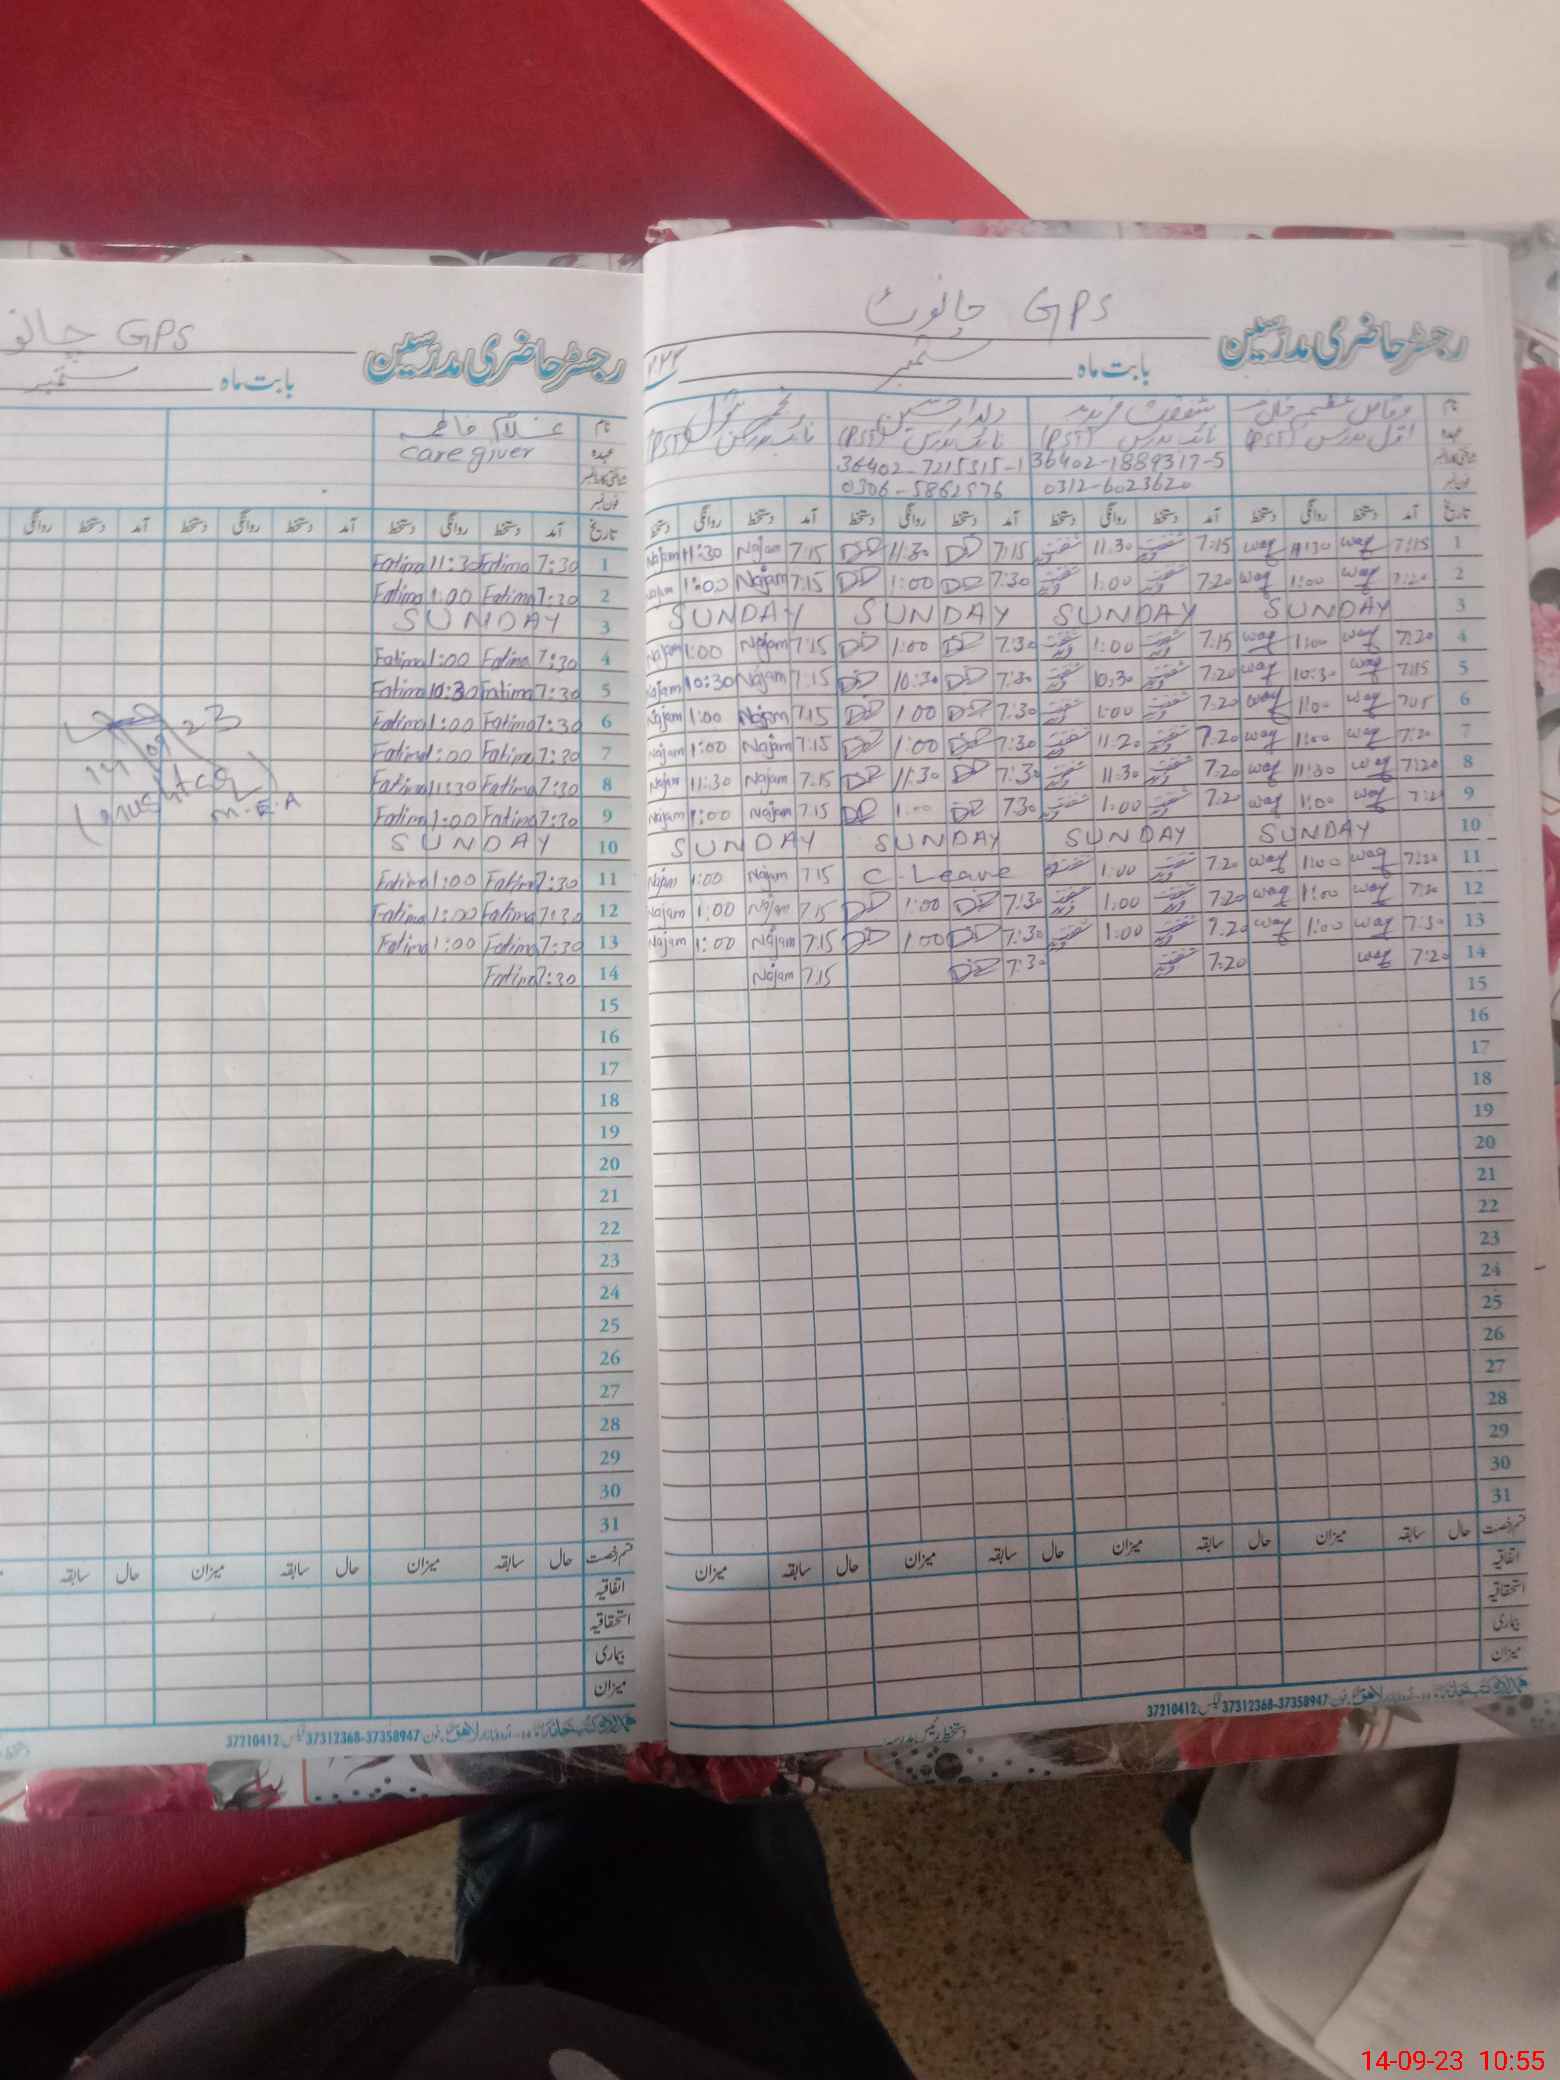 GPS چانوٹ
رجسٹر حاضری مدرسین
بابت ماہ ستمبر
نام وقاص عظیم خان شفقت فرید دلدار حسین نجم
عہدہ اول مدرس (PST) نائب مدرس (PST) نائب مدرس (PST) نائب مدرس (PST)
36402-1889317-5 36402-7215315-1
فون نمبر 0312-6023620 0306-5862976
تاریخ آمد دستخط روانگی دستخط آمد دستخط روانگی دستخط آمد دستخط روانگی دستخط آمد دستخط روانگی دستخط
1 7:15 waq 11:30 waq 7:15 شفقت فرید 11:30 شفقت فرید 7:15 DD 11:30 DD 7:15 Najam 11:30 Najam
2 7:20 waq 1:00 waq 7:20 شفقت فرید 1:00 شفقت فرید 7:30 DD 1:00 DD 7:15 Najam 1:00 Najam
3 SUNDAY SUNDAY SUNDAY SUNDAY
4 7:20 waq 1:00 waq 7:15 شفقت فرید 1:00 شفقت فرید 7:30 DD 1:00 DD 7:15 Najam 1:00 Najam
5 7:15 waq 10:30 waq 7:20 شفقت فرید 10:30 شفقت فرید 7:30 DD 10:30 DD 7:15 Najam 10:30 Najam
6 7:15 waq 1:00 waq 7:20 شفقت فرید 1:00 شفقت فرید 7:30 DD 1:00 DD 7:15 Najam 1:00 Najam
7 7:20 waq 1:00 waq 7:20 شفقت فرید 11:20 شفقت فرید 7:30 DD 1:00 DD 7:15 Najam 1:00 Najam
8 7:20 waq 11:30 waq 7:20 شفقت فرید 11:30 شفقت فرید 7:30 DD 11:30 DD 7:15 Najam 11:30 Najam
9 7:20 waq 1:00 waq 7:20 شفقت فرید 1:00 شفقت فرید 7:30 DD 1:00 DD 7:15 Najam 1:00 Najam
10 SUNDAY SUNDAY SUNDAY SUNDAY
11 7:20 waq 1:00 waq 7:20 شفقت فرید 1:00 شفقت فرید C-Leave 7:15 Najam 1:00 Najam
12 7:20 waq 1:00 waq 7:20 شفقت فرید 1:00 شفقت فرید 7:30 DD 1:00 DD 7:15 Najam 1:00 Najam
13 7:30 waq 1:00 waq 7:20 شفقت فرید 1:00 شفقت فرید 7:30 DD 1:00 DD 7:15 Najam 1:00 Najam
14 7:20 waq 7:20 شفقت فرید 7:30 DD 7:15 Najam
15
16
17
18
19
20
21
22
23
24
25
26
27
28
29
30
31
قسم رخصت حال سابقہ میزان حال سابقہ میزان حال سابقہ میزان حال سابقہ میزان
اتفاقیہ
استحقاقیہ
بیماری
میزان
37210412 فیکس 37312368-37358947
دستخط رئیس مدرسہ
GPS چانو
رجسٹر حاضری مدرسین
بابت ماہ ستمبر
نام غلام فاطمہ
عہدہ care giver
فون نمبر
تاریخ آمد دستخط روانگی دستخط آمد دستخط روانگی دستخط آمد دستخط روانگی
1 7:30 Fatima 11:30 Fatima
2 7:30 Fatima 1:00 Fatima
3 SUNDAY
4 7:30 Fatima 1:00 Fatima
5 7:30 Fatima 10:30 Fatima
6 7:30 Fatima 1:00 Fatima
7 7:30 Fatima 1:00 Fatima
8 7:30 Fatima 11:30 Fatima
9 7:30 Fatima 1:00 Fatima
10 SUNDAY
11 7:30 Fatima 1:00 Fatima
12 7:30 Fatima 1:00 Fatima
13 7:30 Fatima 1:00 Fatima
14 7:30 Fatima
15
16
17
18
19
20
21
22
23
24
25
26
27
28
29
30
31
14/09/23
(mushtaq)
M.E.A
قسم رخصت حال سابقہ میزان حال سابقہ میزان حال سابقہ
اتفاقیہ
استحقاقیہ
بیماری
میزان
37210412 فیکس 37312368-37358947
14-09-23 10:55